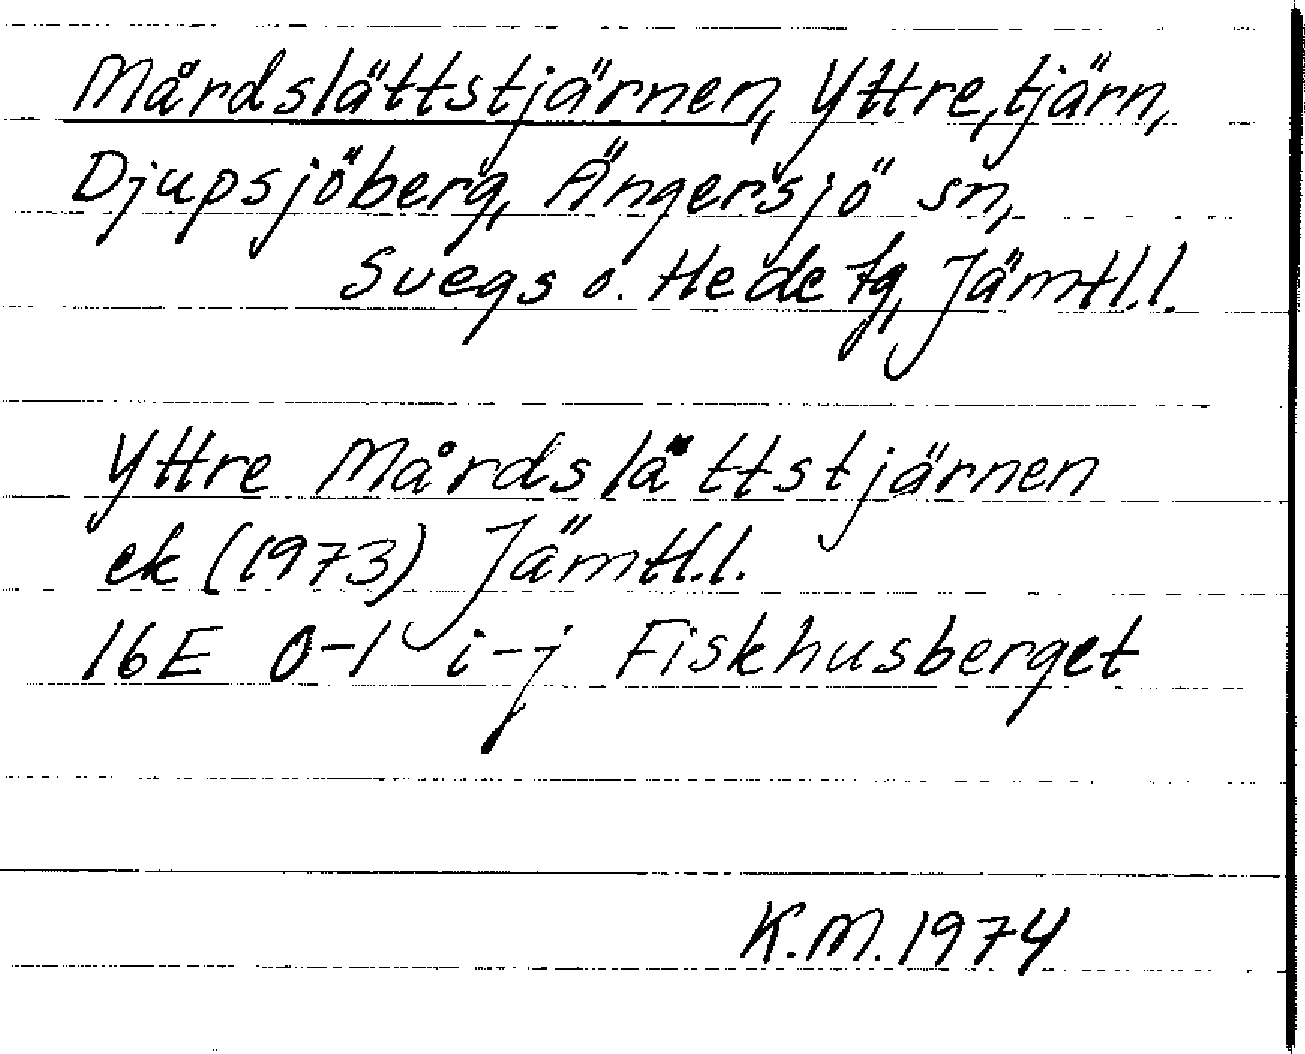 Mårdslättstjärnen, Yttre, tjärn,
Djupsjöberg, Ängersjö sn,
Svegs o. Hede tg, Jämtl.l.
Yttre Mårdslättstjärnen
ek (1973) Jämtl.l.
16E 0-1 i-j Fiskhusberget
K.M. 1974